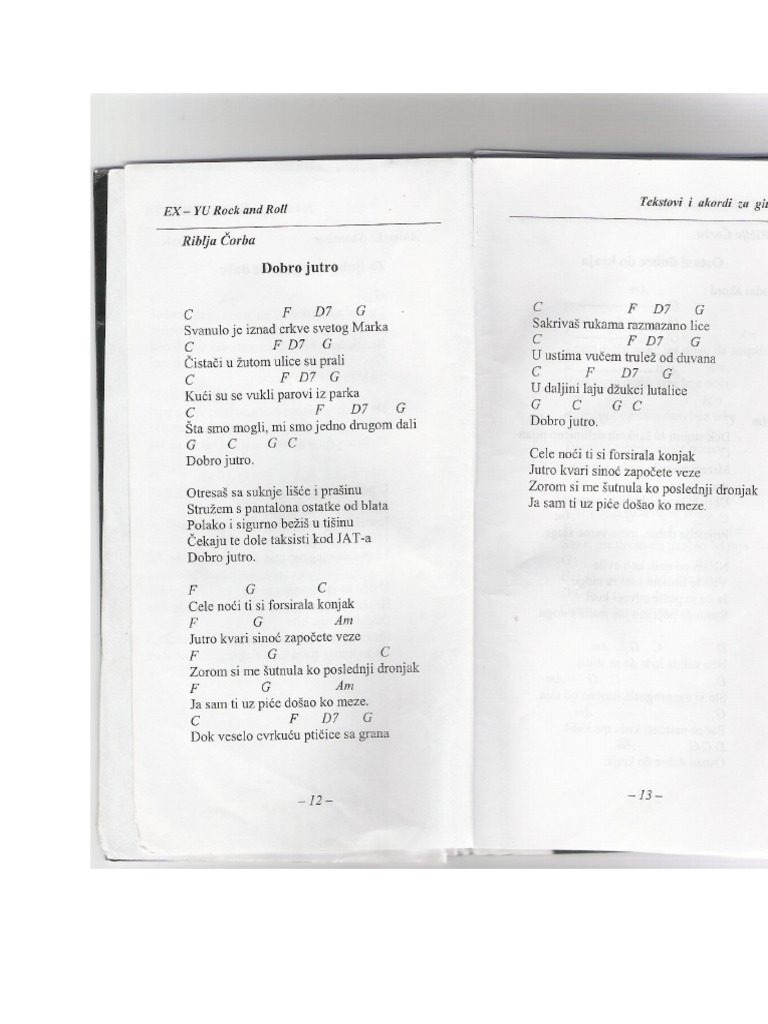 EX – YU Rock and Roll
Riblja Čorba
Dobro jutro
C F D7 G
Svanulo je iznad crkve svetog Marka
C F D7 G
Čistači u žutom ulice su prali
C F D7 G
Kući su se vukli parovi iz parka
C F D7 G
Šta smo mogli, mi smo jedno drugom dali
G C G C
Dobro jutro.
Otresaš sa suknje lišće i prašinu
Stružem s pantalona ostatke od blata
Polako i sigurno bežiš u tišinu
Čekaju te dole taksisti kod JAT-a
Dobro jutro.
F G C
Cele noći ti si forsirala konjak
F G Am
Jutro kvari sinoć započete veze
F G C
Zorom si me šutnula ko poslednji dronjak
F G Am
Ja sam ti uz piće došao ko meze.
C F D7 G
Dok veselo cvrkuću ptičice sa grana
– 12 –
Tekstovi i akordi za git
C F D7 G
Sakrivaš rukama razmazano lice
C F D7 G
U ustima vučem trulež od duvana
C F D7 G
U daljini laju džukci lutalice
G C G C
Dobro jutro.
Cele noći ti si forsirala konjak
Jutro kvari sinoć započete veze
Zorom si me šutnula ko poslednji dronjak
Ja sam ti uz piće došao ko meze.
– 13 –